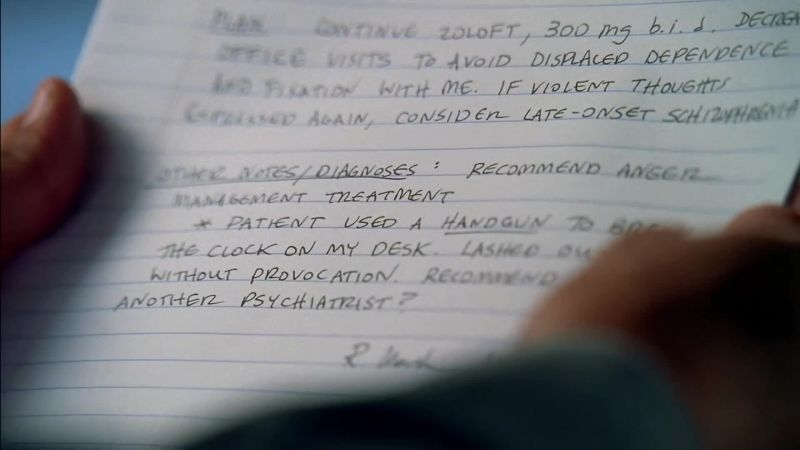 PLAN CONTINUE ZOLOFT, 300 mg b.i.d. DECREA
OFFICE VISITS TO AVOID DISPLACED DEPENDENCE
AND FIXATION WITH ME. IF VIOLENT THOUGHTS
EXPRESSED AGAIN, CONSIDER LATE-ONSET SCHIZOPHRENIA
OTHER NOTES/DIAGNOSES: RECOMMEND ANGER
MANAGEMENT TREATMENT
* PATIENT USED A HANDGUN TO
THE CLOCK ON MY DESK. LASHED OU
WITHOUT PROVOCATION. RECOMMEND
ANOTHER PSYCHIATRIST?